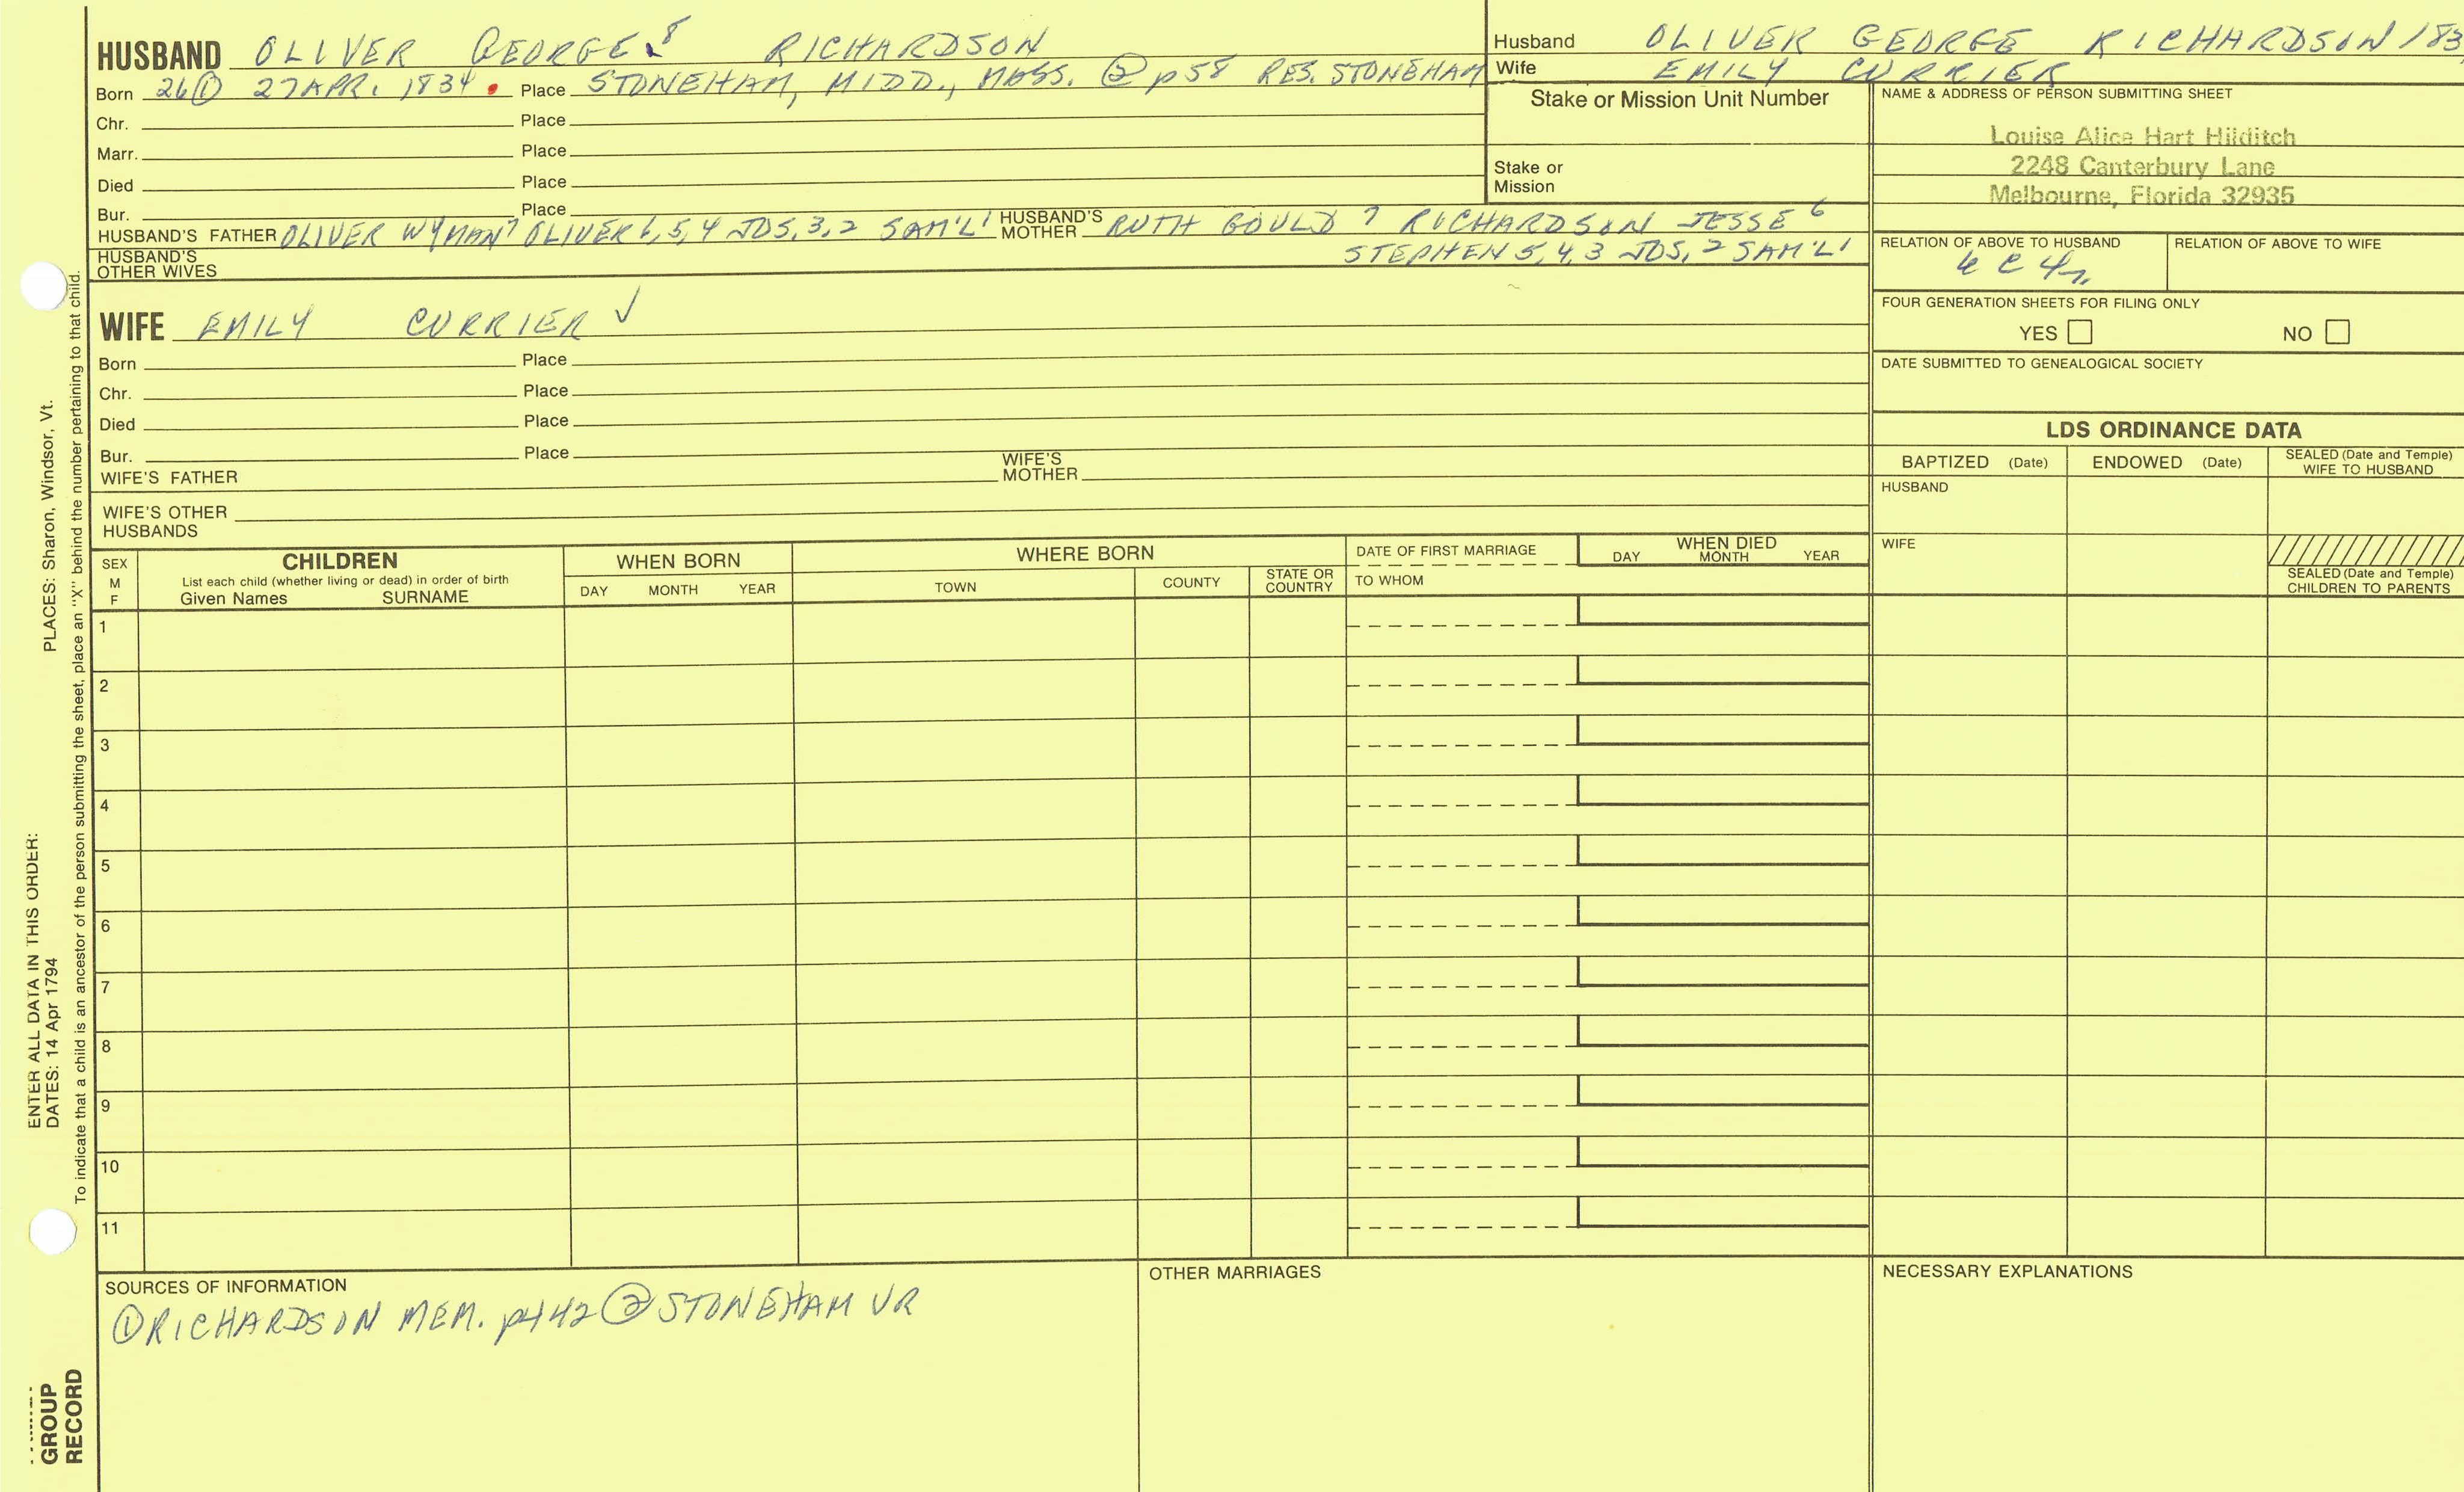 HUSBAND OLIVER GEORGE 8 RICHARDSON
Born 26① 27 APR. 1834. Place STONEHAM, MIDD., MASS. ② p58 RES. STONEHAM
Chr. Place
Marr. Place
Died Place
Bur. Place
HUSBAND'S FATHER OLIVER WYMAN 7 OLIVER 6, 5, 4 JOS, 3, 2 SAM'L 1 HUSBAND'S MOTHER RUTH GOULD 7 RICHARDSON JESSE 6
STEPHEN 5, 4, 3 JOS, 2 SAM'L 1
HUSBAND'S OTHER WIVES
WIFE EMILY CURRIER ✓
Born Place
Chr. Place
Died Place
Bur. Place
WIFE'S FATHER WIFE'S MOTHER
WIFE'S OTHER HUSBANDS
Husband OLIVER GEORGE RICHARDSON 183
Wife EMILY CURRIER
Stake or Mission Unit Number
Stake or
Mission
NAME & ADDRESS OF PERSON SUBMITTING SHEET
Louise Alice Hart Hilditch
2248 Canterbury Lane
Melbourne, Florida 32935
RELATION OF ABOVE TO HUSBAND RELATION OF ABOVE TO WIFE
FOUR GENERATION SHEETS FOR FILING ONLY
YES NO
DATE SUBMITTED TO GENEALOGICAL SOCIETY
LDS ORDINANCE DATA
BAPTIZED (Date) ENDOWED (Date) SEALED (Date and Temple) WIFE TO HUSBAND
HUSBAND
WIFE
SEALED (Date and Temple)
CHILDREN TO PARENTS
SEX M F CHILDREN
List each child (whether living or dead) in order of birth
Given Names SURNAME
WHEN BORN
DAY MONTH YEAR
WHERE BORN
TOWN COUNTY STATE OR COUNTRY
DATE OF FIRST MARRIAGE
TO WHOM
WHEN DIED
DAY MONTH YEAR
1
2
3
4
5
6
7
8
9
10
11
SOURCES OF INFORMATION
① RICHARDSON MEM. p442 ② STONEHAM VR
OTHER MARRIAGES
NECESSARY EXPLANATIONS
PLACES: Sharon, Windsor, Vt.
ENTER ALL DATA IN THIS ORDER:
DATES: 14 Apr 1794
To indicate that a child is an ancestor of the person submitting the sheet, place an "X" behind the number pertaining to that child.
GROUP
RECORD